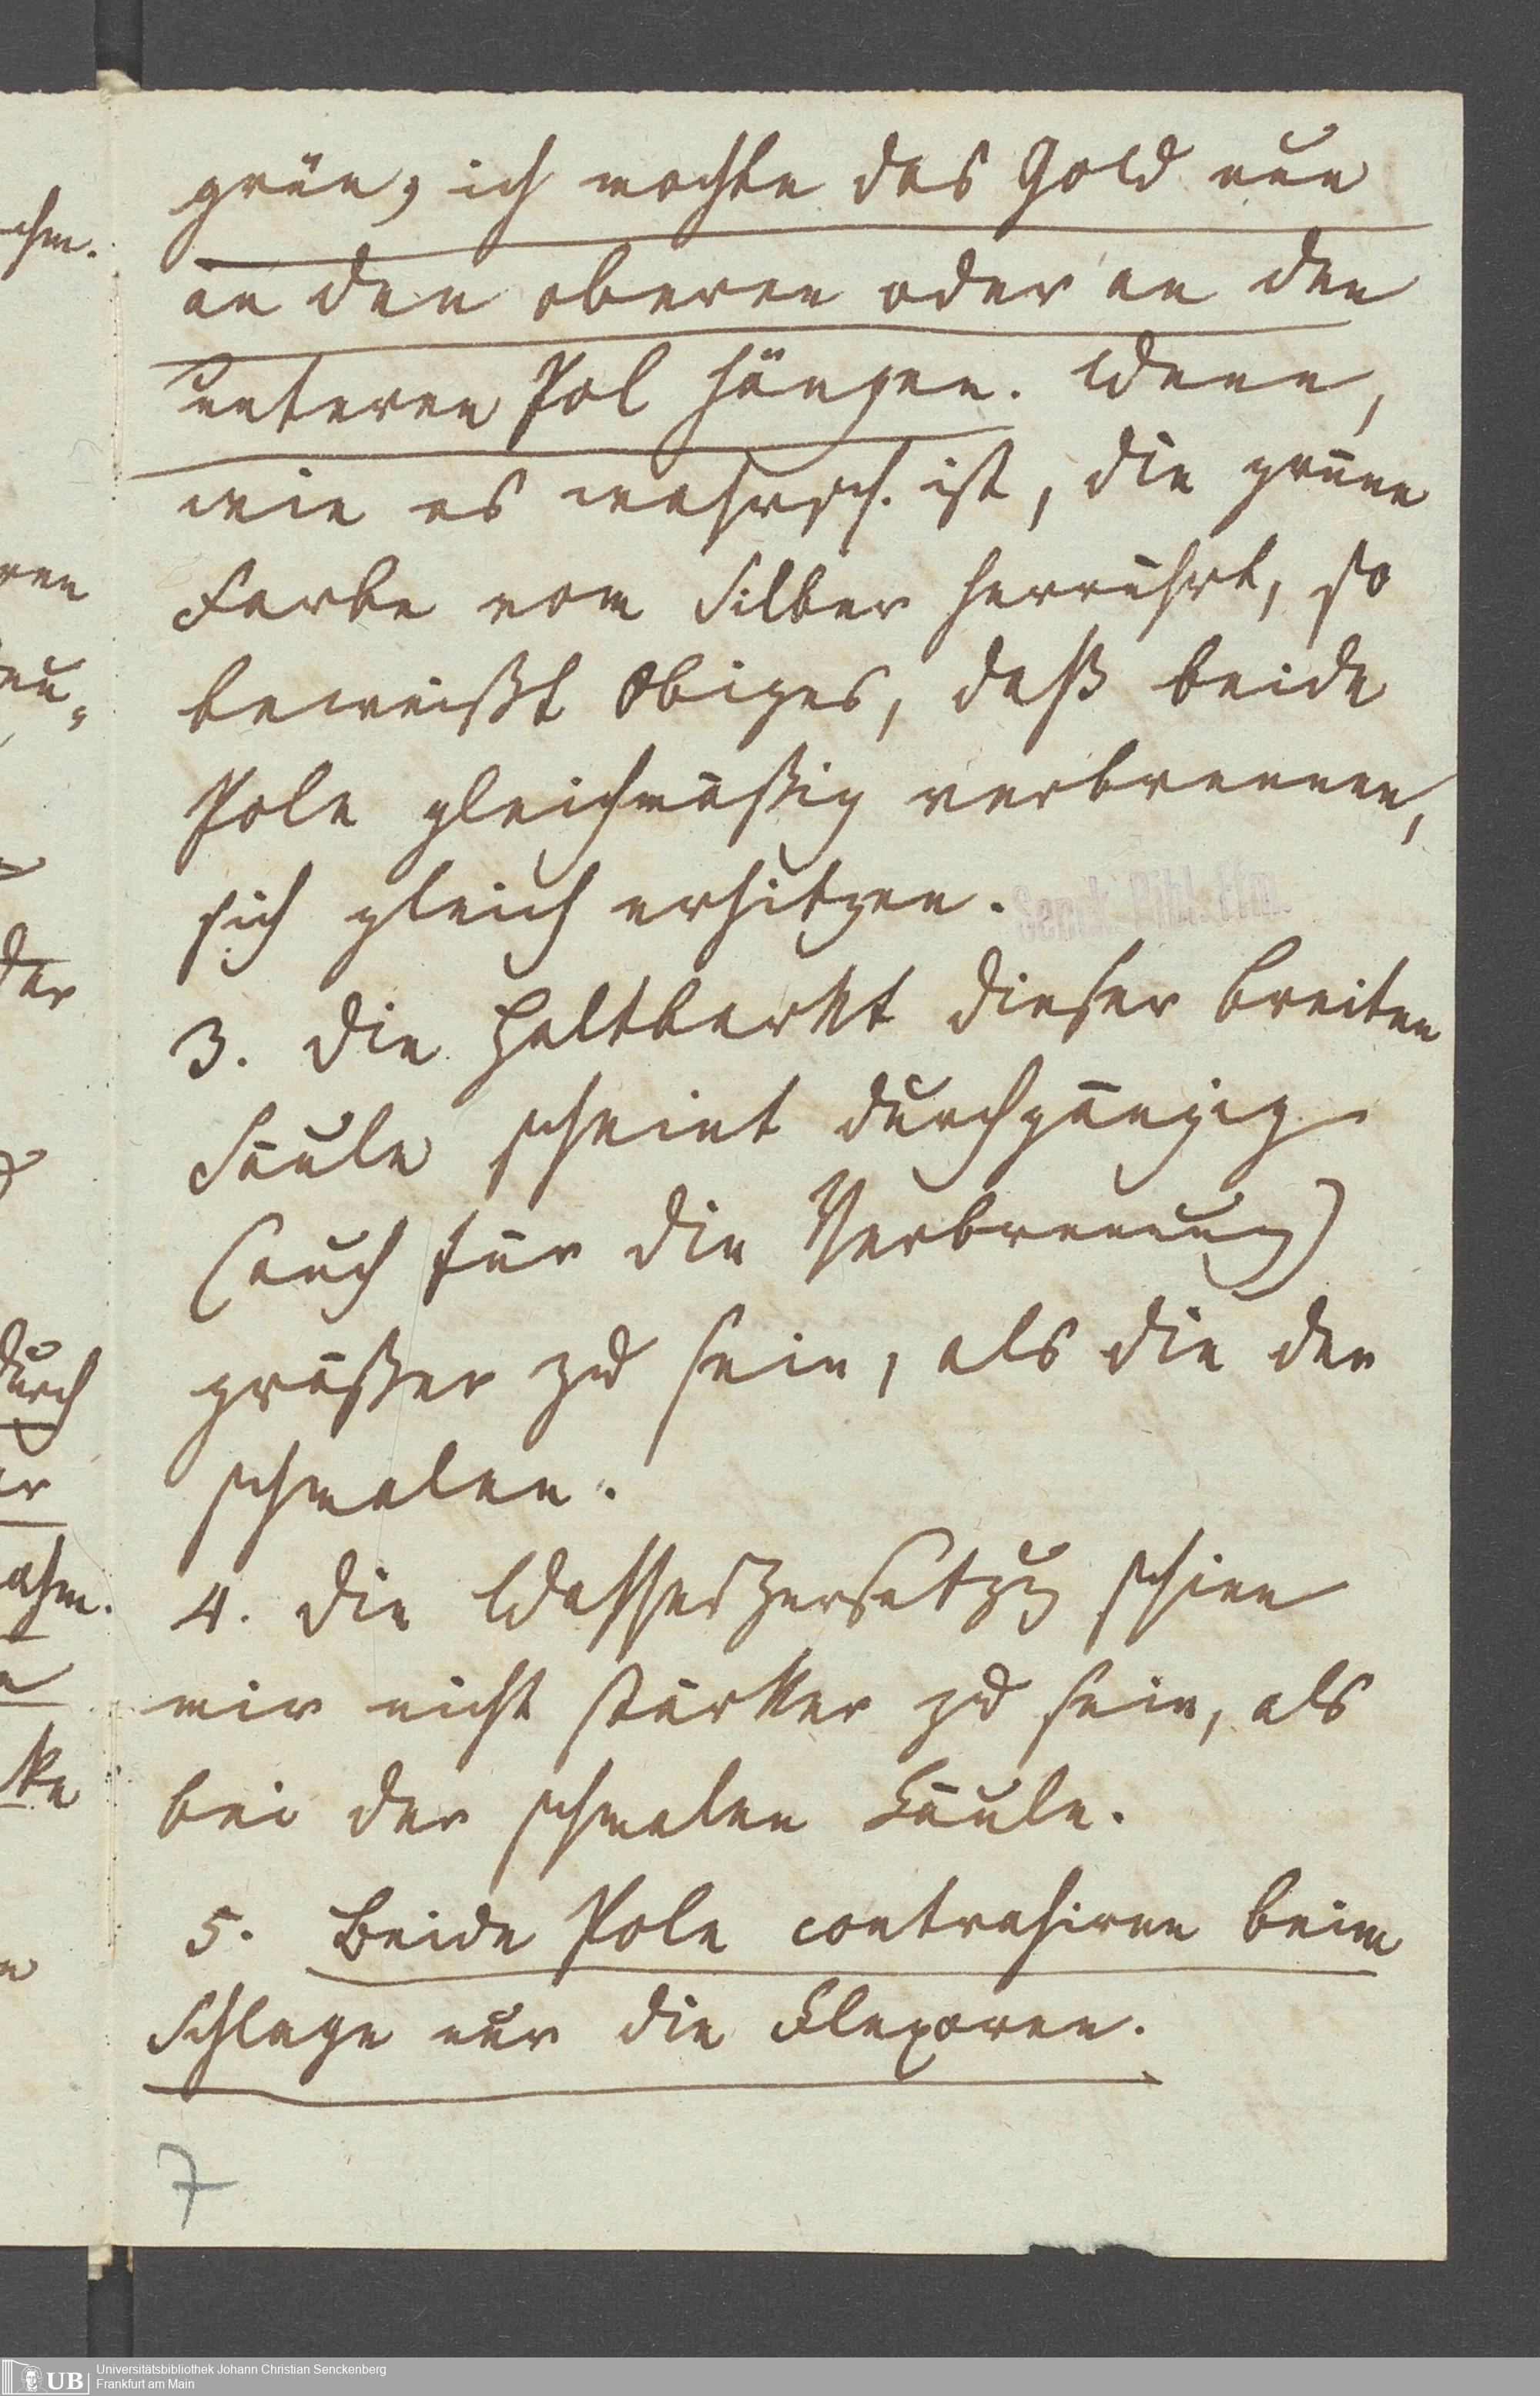 grün, ich mochte das Gold nun
an den oberen oder an den
unteren Pol hängen. Wenn,
wie es wahrsch. ist, die grüne
Farbe vom Silber herrührt, so
beweißt Obiges, daß beide
Pole gleichmäßig verbrennen,
sich gleich erhitzen.
Senck. Bibl. Ffm.
3. Die Haltbarkt dieser breiten
Säule scheint durchgängig
(auch für die Verbrennung)
größer zu sein, als die der
schmalen.
4. Die Wasserzersetzug schien
mir nicht stärker zu sein, als
bei der schmalen Säule.
5. Beide Pole contrahiren beim
Schlage nur die Flexoren.
7
chm.
ren
der
durch
ahm.
ke
UB Universitätsbibliothek Johann Christian Senckenberg
Frankfurt am Main